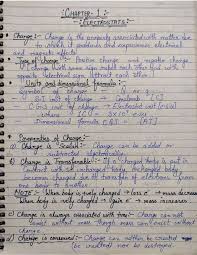 CHAPTER-1
ELECTROSTATIC
Charge:- Charge is the property associated with matter due
to which it produces and experiences electrical
and magnetic effects.
Type of charge:- Positive charge and negative charge
Charges with same sign repel each other and with
opposite sign attract each other.
Units and dimensional formula:-
S.I unit of charge → Coulomb [C]
C.G.S unit of charge →
1 Coulomb = 3×10⁹ esu
Dimensional formula [Q] = [AT]
Properties of Charge:-
a) Charge is Scalar:- Charge can be added or
subtracted
b) Charge is Transferable:- If a charged body is put in
contact with uncharged body, uncharged body
becomes charged due to transfer of electrons from
one body to another.
NOTE → When body is +vely charged → loss e⁻ → mass decrease
When body is -vely charged → Gain e⁻ → mass increases
c) Charge is always associated with mass:- Charge cannot
exist without mass though mass can exist without
charge.
d) Charge is conserved:- Charge can neither be created
nor be destroyed